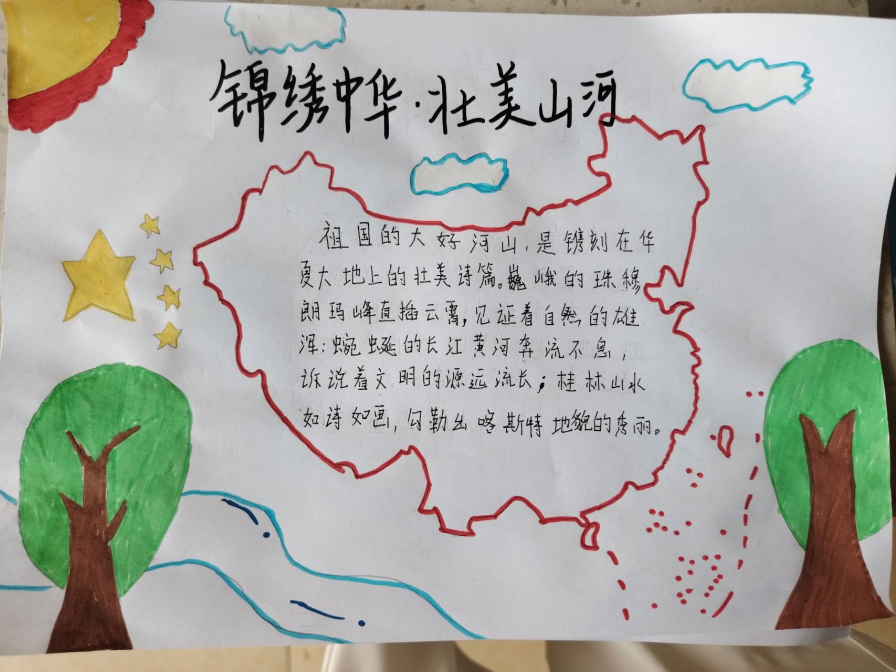 锦绣中华·壮美山河
祖国的大好河山,是镌刻在华
夏大地上的壮美诗篇。巍峨的珠穆
朗玛峰直插云霄,见证着自然的雄
浑;蜿蜒的长江黄河奔流不息,
诉说着文明的源远流长;桂林山水
如诗如画,勾勒出喀斯特地貌的秀丽。